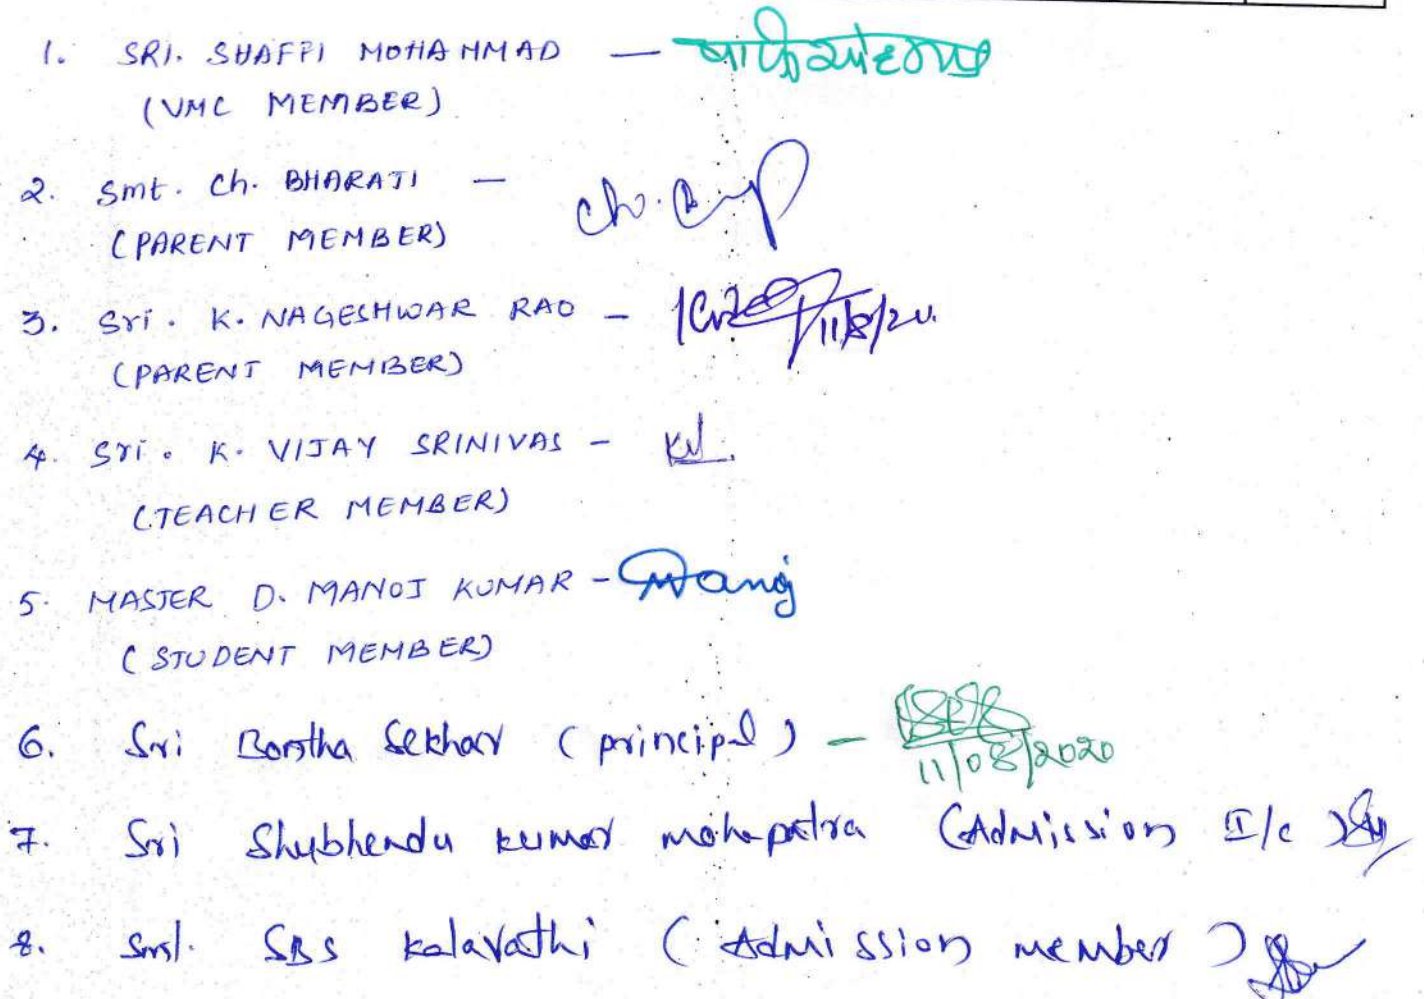 1. SRI. SHAFFI MOHAMMAD —
(VMC MEMBER)
2. Smt. Ch. BHARATI — Ch.
(PARENT MEMBER)
3. Sri. K. NAGESHWAR RAO — 11/8/20.
(PARENT MEMBER)
4. Sri. K. VIJAY SRINIVAS —
(TEACHER MEMBER)
5. MASTER D. MANOJ KUMAR — Manoj
(STUDENT MEMBER)
6. Sri Bonstha Sekhar (principal) —
11/08/2020
7. Sri Shubhendu kumar mohapatra (Admission I/c)
8. Smt. SBS kalavathi (Admission member)